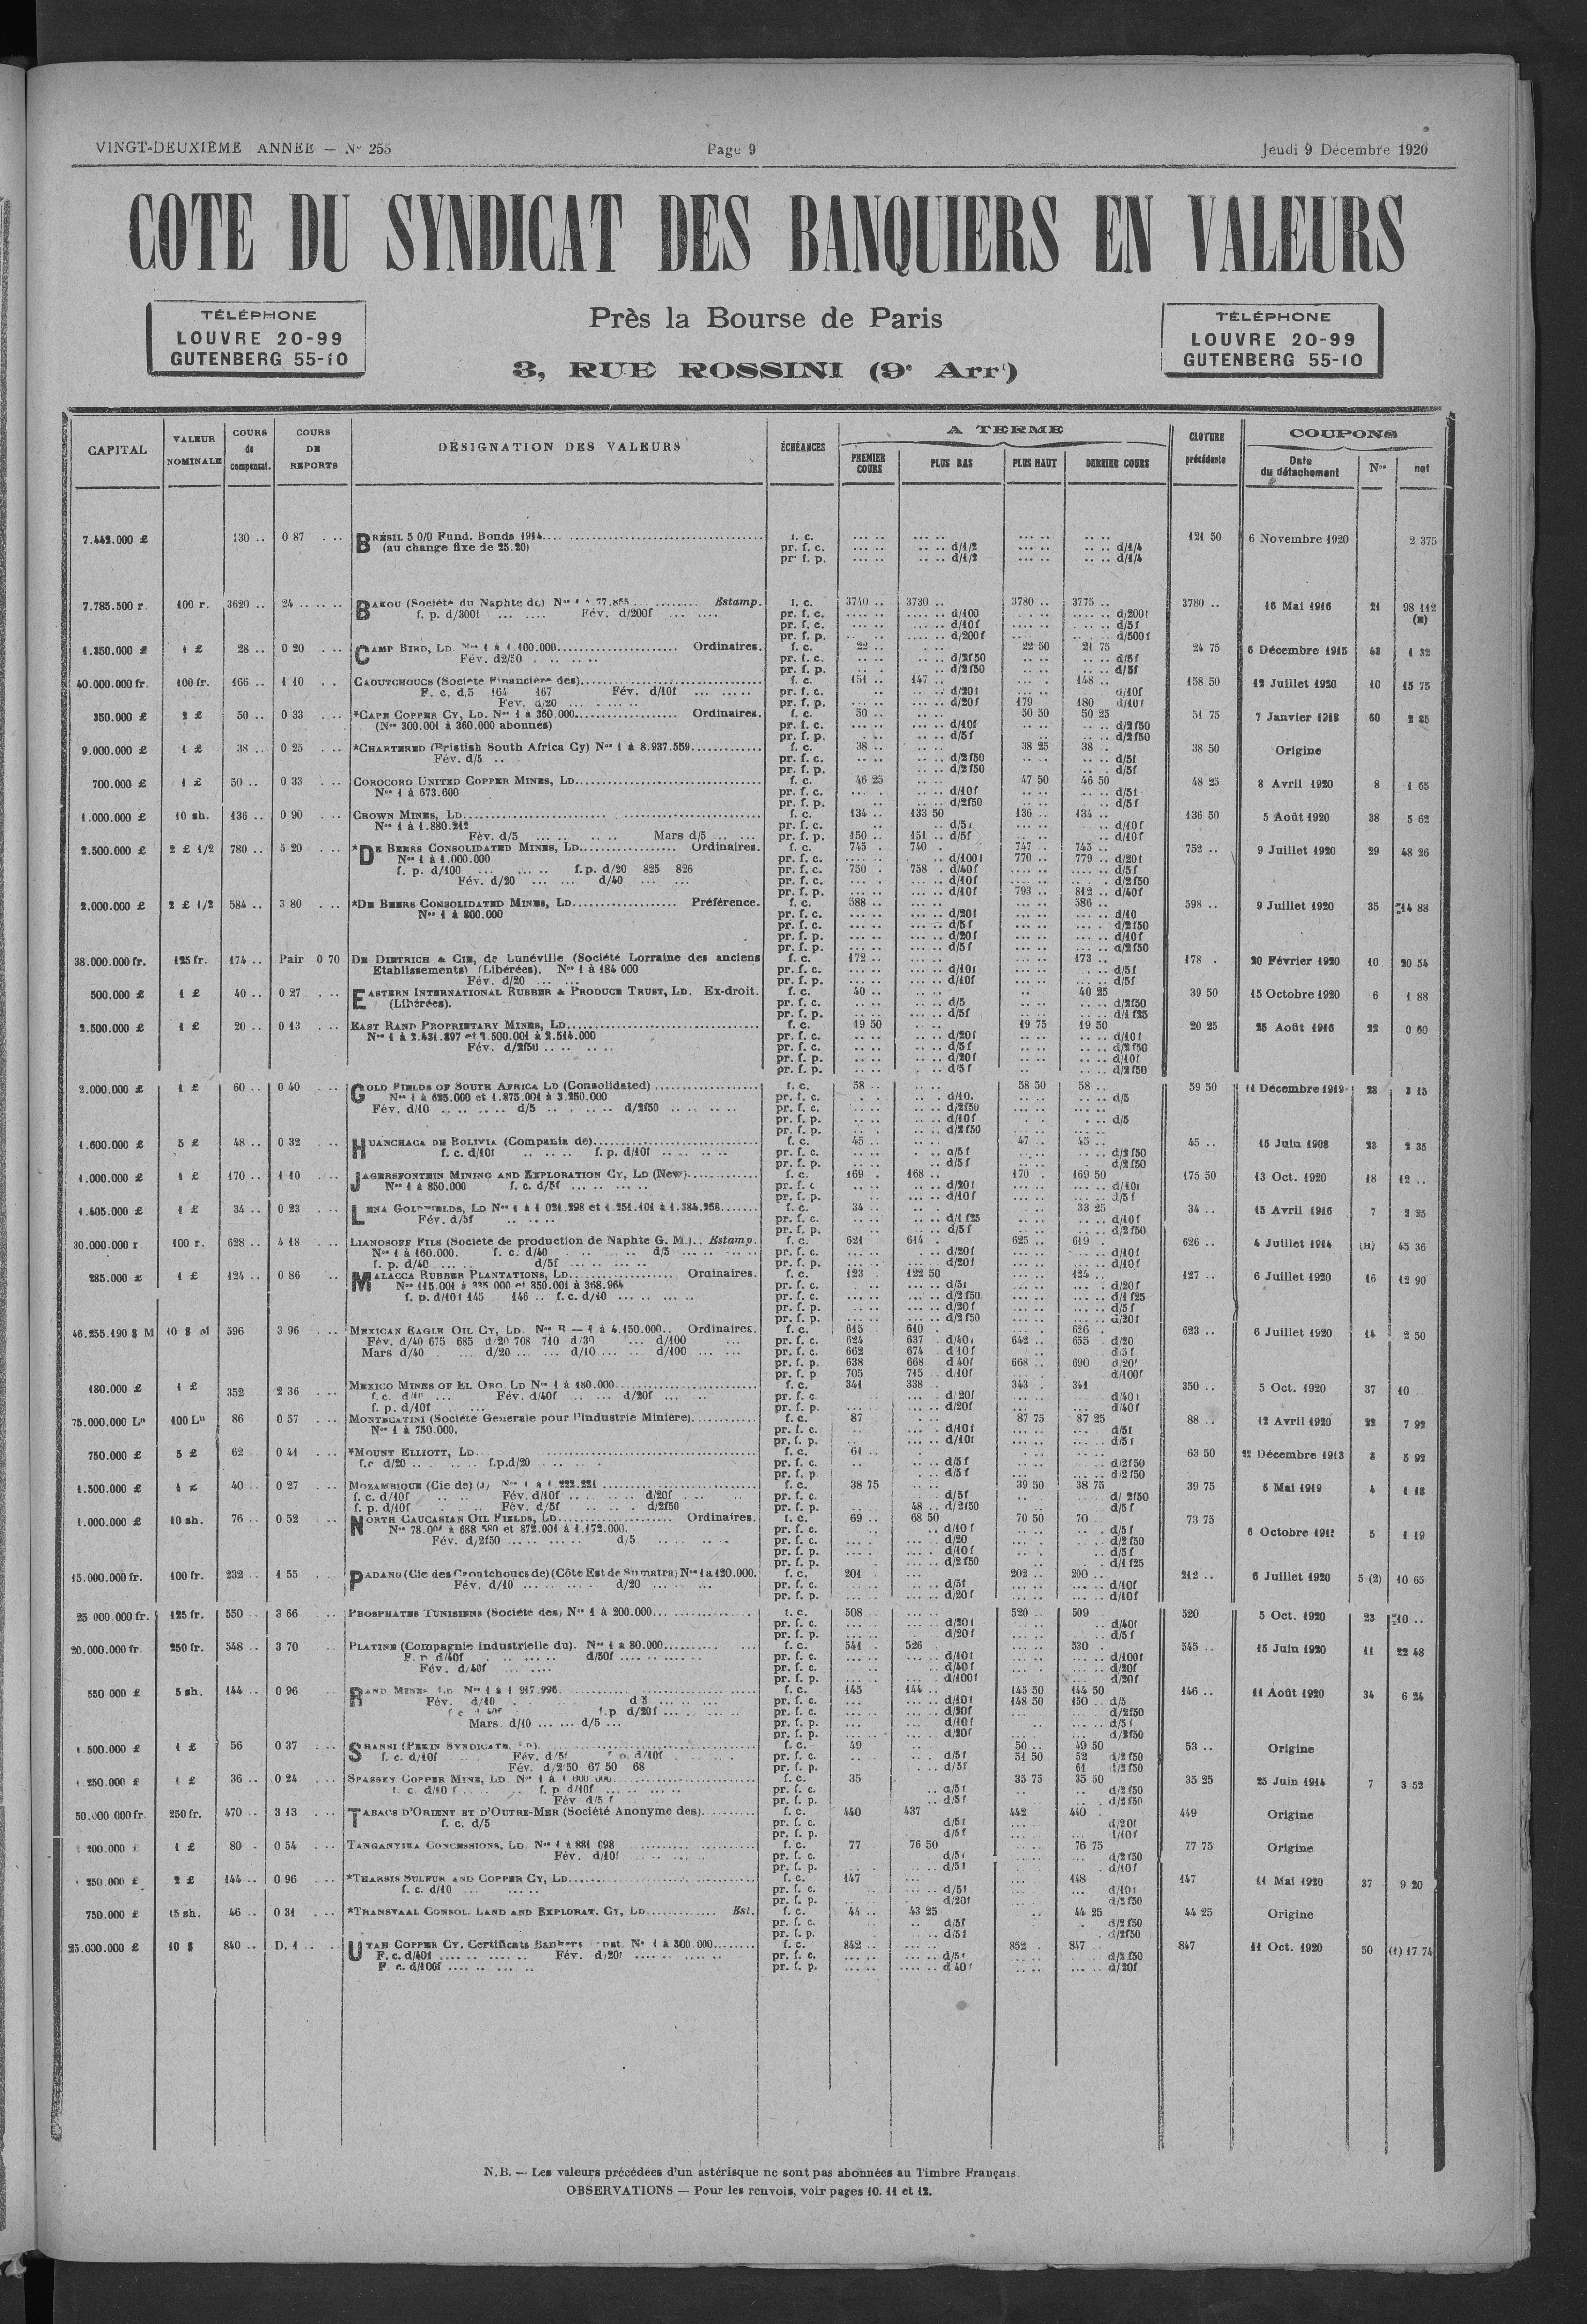 VINGT-DEUXIÈME ANNÉE — N° 255 Page 9 Jeudi 9 Décembre 1920
COTE DU SYNDICAT DES BANQUIERS EN VALEURS
TÉLÉPHONE
LOUVRE 20-99
GUTENBERG 55-10
Près la Bourse de Paris
3, RUE ROSSINI (9e Arrt)
TÉLÉPHONE
LOUVRE 20-99
GUTENBERG 55-10
CAPITAL VALEUR NOMINALE COURS de compensat. COURS DE REPORTS DÉSIGNATION DES VALEURS ÉCHÉANCES A TERME PREMIER COURS PLUS BAS PLUS HAUT DERNIER COURS CLOTURE précédente COUPONS Date du détachement Nos net
7.442.000 £ 130 .. 0 87 BRÉSIL 5 0/0 Fund. Bonds 1914 f. c. 121 50 6 Novembre 1920 2 375
(au change fixe de 25.20) pr. f. c. d/1/2 d/1/4
pr. f. p. d/1/2 d/1/4
7.785.500 r. 100 r. 3620 .. 24 BAKOU (Société du Naphte de) Nos 1 à 77.855 Estamp. f. c. 3740 .. 3730 .. 3780 .. 3775 .. 3780 .. 16 Mai 1916 21 98 112
f. p. d/300f Fév. d/200f pr. f. c. d/100 d/200f
pr. f. c. d/10f d/5f
pr. f. p. d/200f d/500f
1.350.000 £ 1 £ 28 .. 0 20 CAMP BIRD, LD. Nos 1 à 1.100.000 Ordinaires. f. c. 22 .. 22 50 21 75 24 75 6 Décembre 1915 43 1 32
Fév. d2/50 pr. f. c. d/2f50 d/5f
pr. f. p. d/2f50 d/5f
40.000.000 fr. 100 fr. 166 .. 1 10 CAOUTCHOUCS (Société Financière des) f. c. 151 .. 147 .. 148 .. 158 50 12 Juillet 1920 10 15 75
F. c. d/5 164 167 Fév. d/10f pr. f. c. d/20f d/10f
Fév. d/20 pr. f. p. d/20f 179 180 d/10f
350.000 £ 2 £ 50 .. 0 33 *CAPE COPPER CY, LD. Nos 1 à 360.000 Ordinaires. f. c. 50 .. 50 50 50 25 51 75 7 Janvier 1918 60 2 85
(Nos 300.001 à 360.000 abonnés) pr. f. c. d/10f d/2f50
pr. f. p. d/5f d/2f50
9.000.000 £ 1 £ 38 .. 0 25 *CHARTERED (Bristish South Africa Cy) Nos 1 à 8.937.559 f. c. 38 .. 38 25 38 . 38 50 Origine
Fév. d/5 pr. f. c. d/2f50 d/5f
pr. f. p. d/2f50 d/5f
700.000 £ 1 £ 50 .. 0 33 COROCORO UNITED COPPER MINES, LD f. c. 46 25 47 50 46 50 48 25 8 Avril 1920 8 1 65
Nos 1 à 673.600 pr. f. c. d/10f d/5f
pr. f. p. d/2f50 d/5f
1.000.000 £ 10 sh. 136 .. 0 90 CROWN MINES, LD f. c. 134 .. 133 50 136 .. 134 .. 136 50 5 Août 1920 38 5 62
Nos 1 à 1.880.212 pr. f. c. d/5f d/10f
Fév. d/5 Mars d/5 pr. f. p. 150 .. 151 .. d/5f d/10f
2.500.000 £ 2 £ 1/2 780 .. 5 20 *DE BEERS CONSOLIDATED MINES, LD Ordinaires. f. c. 745 . 740 . 747 . 745 .. 752 .. 9 Juillet 1920 29 48 26
Nos 1 à 1.000.000 pr. f. c. d/100f 770 .. 779 .. d/20f
f. p. d/100 f.p. d/20 825 826 pr. f. c. 750 . 758 .. d/40f d/5f
Fév. d/20 d/40 pr. f. c. d/10f d/2f50
pr. f. p. d/10f 793 .. 812 .. d/40f
2.000.000 £ 2 £ 1/2 584 .. 3 80 *DE BEERS CONSOLIDATED MINES, LD Préférence. f. c. 588 .. 586 .. 598 .. 9 Juillet 1920 35 14 88
Nos 1 à 800.000 pr. f. c. d/20f d/10
pr. f. c. d/5f d/2f50
pr. f. p. d/20f d/10f
pr. f. p. d/5f d/2f50
38.000.000 fr. 125 fr. 174 .. Pair 0 70 DE DIETRICH & CIE, de Lunéville (Société Lorraine des anciens f. c. 172 .. 173 .. 178 . 20 Février 1920 10 20 54
Etablissements) (Libérées). Nos 1 à 184 000 pr. f. c. d/10f d/5f
Fév. d/20 pr. f. p. d/10f d/5f
500.000 £ 1 £ 40 .. 0 27 EASTERN INTERNATIONAL RUBBER & PRODUCE TRUST, LD. Ex-droit. f. c. 40 .. 40 25 39 50 15 Octobre 1920 6 1 88
(Libérées). pr. f. c. d/5 d/2f50
pr. f. p. d/5f d/1f25
2.500.000 £ 1 £ 20 .. 0 13 EAST RAND PROPRIETARY MINES, LD f. c. 19 50 19 75 19 50 20 25 25 Août 1916 22 0 60
Nos 1 à 2.431.897 et 2.500.001 à 2.514.000 pr. f. c. d/20f d/10f
Fév. d/2f50 pr. f. c. d/5f d/2f50
pr. f. p. d/20f d/10f
pr. f. p. d/5f d/2f50
2.000.000 £ 1 £ 60 .. 0 40 GOLD FIELDS OF SOUTH AFRICA LD (Consolidated) f. c. 58 .. 58 50 58 .. 59 50 11 Décembre 1919 28 3 15
Nos 1 à 625.000 et 1.875.001 à 3.250.000 pr. f. c. d/10. d/5
Fév. d/10 d/5 d/2f50 pr. f. c. d/2f50
pr. f. p. d/10f d/5
pr. f. p. d/2f50
1.600.000 £ 5 £ 48 .. 0 32 HUANCHACA DE BOLIVIA (Compania de) f. c. 45 .. 47 .. 45 .. 45 .. 15 Juin 1908 23 2 35
f. c. d/10f f. p. d/10f pr. f. c. d/5f d/2f50
pr. f. p. d/5f d/2f50
1.000.000 £ 1 £ 170 .. 1 10 JAGERSFONTEIN MINING AND EXPLORATION CY, LD (New) f. c. 169 . 168 .. 170 . 169 50 175 50 13 Oct. 1920 18 12 ..
Nos 1 à 850.000 f. c. d/5f pr. f. c d/20f d/10f
pr. f. p. d/10f d/5f
1.405.000 £ 1 £ 34 .. 0 23 LENA GOLDFIELDS, LD Nos 1 à 1 021.298 et 1.251.101 à 1.384.258 f. c. 34 .. 33 25 34 .. 15 Avril 1916 7 2 25
Fév. d/5f pr. f. c. d/1f25 d/10f
pr. f. p. d/5f d/2f50
30.000.000 r 100 r. 628 .. 4 18 LIANOSOFF FILS (Société de production de Naphte G. M.) Estamp. f. c. 621 614 . 625 .. 619 . 626 .. 4 Juillet 1914 (H) 45 36
Nos 1 à 160.000. f. c. d/40 d/5 pr. f. c. d/20f d/10f
f. p. d/40 d/5f pr. f. p. d/20f d/10f
285.000 £ 1 £ 124 .. 0 86 MALACCA RUBBER PLANTATIONS, LD Ordinaires. f. c. 123 . 122 50 124 .. 127 .. 6 Juillet 1920 16 12 90
Nos 115.001 à 335 000 et 350.001 à 368.964 pr. f. c. d/5f d/20f
f. p. d/10f 145 146 .. f. c. d/10 pr. f. c. d/2f50 d/1f25
pr. f. p. d/20f d/5f
pr. f. p. d/2f50 d/20f
46.255.190 $ M 10 $ M 596 3 96 MEXICAN EAGLE OIL CY, LD. Nos B — 1 à 4.150.000 Ordinaires. f. c. 615 610 . 626 . 623 .. 6 Juillet 1920 14 2 50
Fév. d/40 675 685 d/20 708 710 d/30 d/100 pr. f. c. 624 637 . d/40f 642 .. 655 . d/20
Mars d/40 d/20 d/10 d/100 pr. f. c. 662 674 . d 10f d/5f
pr. f. p. 638 668 . d 40f 668 .. 690 d/20f
pr. f. p 705 715 .. d/10f d/100f
180.000 £ 1 £ 352 2 36 MEXICO MINES OF EL ORO, LD Nos 1 à 180.000 f. c. 341 338 .. 343 . 341 350 .. 5 Oct. 1920 37 10
f. c. d/10 Fév. d/40f d/20f pr. f. c. d/20f d/40f
f. p. d/10f pr. f. p. d/20f d/40f
75.000.000 Ls 100 Ls 86 0 57 MONTECATINI (Société Generale pour l'Industrie Miniere) f. c. 87 87 75 87 25 88 .. 12 Avril 1920 22 7 92
Nos 1 à 750.000. pr. f. c. d/10f d/5f
pr. f. p. d/10f d/5f
750.000 £ 5 £ 62 0 41 *MOUNT ELLIOTT, LD. f. c. 61 .. 63 50 22 Décembre 1913 8 5 92
f.c d/20 f.p.d/20 pr. f. c. d/5f d/2f50
pr. f. p d/5f d/2f50
1.500.000 £ 1 £ 40 .. 0 27 MOZAMBIQUE (Cie de) Nos 1 à 1.222.221 f. c. 38 75 39 50 38 75 39 75 5 Mai 1919 4 1 18
f. c. d/10f Fév. d/10f d/20f pr. f. c. d/5f d/ 2f50
f. p. d/10f Fév. d/5f d/2f50 pr. f. p. 48 .. d/2f50 d/5f
1.000.000 £ 10 sh. 76 .. 0 52 NORTH CAUCASIAN OIL FIELDS, LD Ordinaires. f. c. 69 .. 68 50 70 50 70 .. 73 75
Nos 78.001 à 688 580 et 872.001 à 1.172.000. pr. f. c. d/10f d/5f 6 Octobre 5 1 19
Fév. d/2f50 d/5 pr. f. c. d/20 d/2f50
pr. f. p. d/10f d/5f
pr. f. p. d/2f50 d/1f25
15.000.000 fr. 100 fr. 232 .. 1 55 PADANG (Cie des Caoutchoucs de) (Côte Est de Sumatra) Nos 1 à 120.000. f. c. 201 . 202 .. 200 .. 212 .. 6 Juillet 1920 5 (2) 10 65
Fév. d/10 d/20 pr. f. c. d/5f d/10f
pr. f. p. d/20f d/10f
25 000 000 fr. 125 fr. 550 3 66 PHOSPHATES TUNISIENS (Société des) Nos 1 à 200.000 f. c. 508 520 .. 509 520 5 Oct. 1920 23 10 ..
pr. f. c. d/20f d/40f
pr. f. p. d/20f d/5f
20.000.000 fr. 250 fr. 548 .. 3 70 PLATINE (Compagnie industrielle du). Nos 1 à 80.000 f. c. 541 . 526 530 . 545 .. 15 Juin 1920 11 22 48
F. p d/40f d/50f pr. f. c. d/10f d/100f
Fév. d/40f pr. f. c. d/40f d/20f
pr. f. p d/100f d/20f
550 000 £ 5 sh. 144 .. 0 96 RAND MINES LD Nos 1 à 1 917.996. f. c. 145 144 .. 145 50 144 50 146 .. 11 Août 1920 34 6 24
Fév. d/10 d 5 pr. f. c. d/10f 148 50 150 .. d/5
f.p d/20f pr. f. c. d/20f d/2f50
Mars. d/10 d/5 pr. f. p. d/10f d/5f
pr. f. p. d/20f d/2f50
1.500.000 £ 1 £ 56 0 37 SHANSI (PEKIN SYNDICATE, LD). f. c. 49 50 .. 49 50 53 .. Origine
f. c. d/10f Fév. d/5f d/10f pr. f. c. d/5f 51 50 52 d/2f50
Fév. d/2f50 67 50 68 pr. f. p. d/5f 61 d/2f50
1.250.000 £ 1 £ 36 .. 0 24 SPASSKY COPPER MINE, LD. Nos 1 à f. c. 35 35 75 35 50 35 25 25 Juin 1914 7 3 52
f. c. d/10 f f. p. d/10f pr. f. c. d/5f d/2f50
Fév d/5 f pr. f. p. d/5f d/2f50
50.000 000 fr. 250 fr. 470 .. 3 13 TABACS D'ORIENT ET D'OUTRE-MER (Société Anonyme des) f. c. 440 437 442 440 . 449 Origine
f. c. d/5 pr. f. c. d/5f d/20f
pr. f. p. d/5f d/10f
200.000 £ 1 £ 80 . 0 54 TANGANYIKA CONCESSIONS, LD. Nos 1 à 881 098 f. c. 77 76 50 76 75 77 75 Origine
Fév. d/10f pr. f. c. d/5f d/2f50
pr. f. p. d/5f d/10f
250.000 £ 2 £ 144 .. 0 96 *THARSIS SULFUR AND COPPER CY, LD f. c. 147 148 147 11 Mai 1920 37 9 20
f. c. d/10 pr. f. c. d/5f d/10f
pr. f. p. d/20f d/2f50
750.000 £ 15 sh. 46 .. 0 31 *TRANSVAAL CONSOL. LAND AND EXPLORAT. CY, LD Est. f. c. 44 .. 43 25 44 25 44 25 Origine
pr. f. c. d/5f d/2f50
pr. f. p. d/5f d/2f50
25.000.000 £ 10 $ 840 .. D. 1 UTAH COPPER CY. Certificats Bankers Nos 1 à 300.000 f. c. 842 .. 852 . 847 .. 847 11 Oct. 1920 50 (1) 17 74
F. c. d/40f Fév. d/20f pr. f. c. d/5f d/2f50
F. c. d/100f pr. f. p. d 40f d/20f
N.B. — Les valeurs précédées d'un astérisque ne sont pas abonnées au Timbre Français.
OBSERVATIONS — Pour les renvois, voir pages 10. 11 et 12.